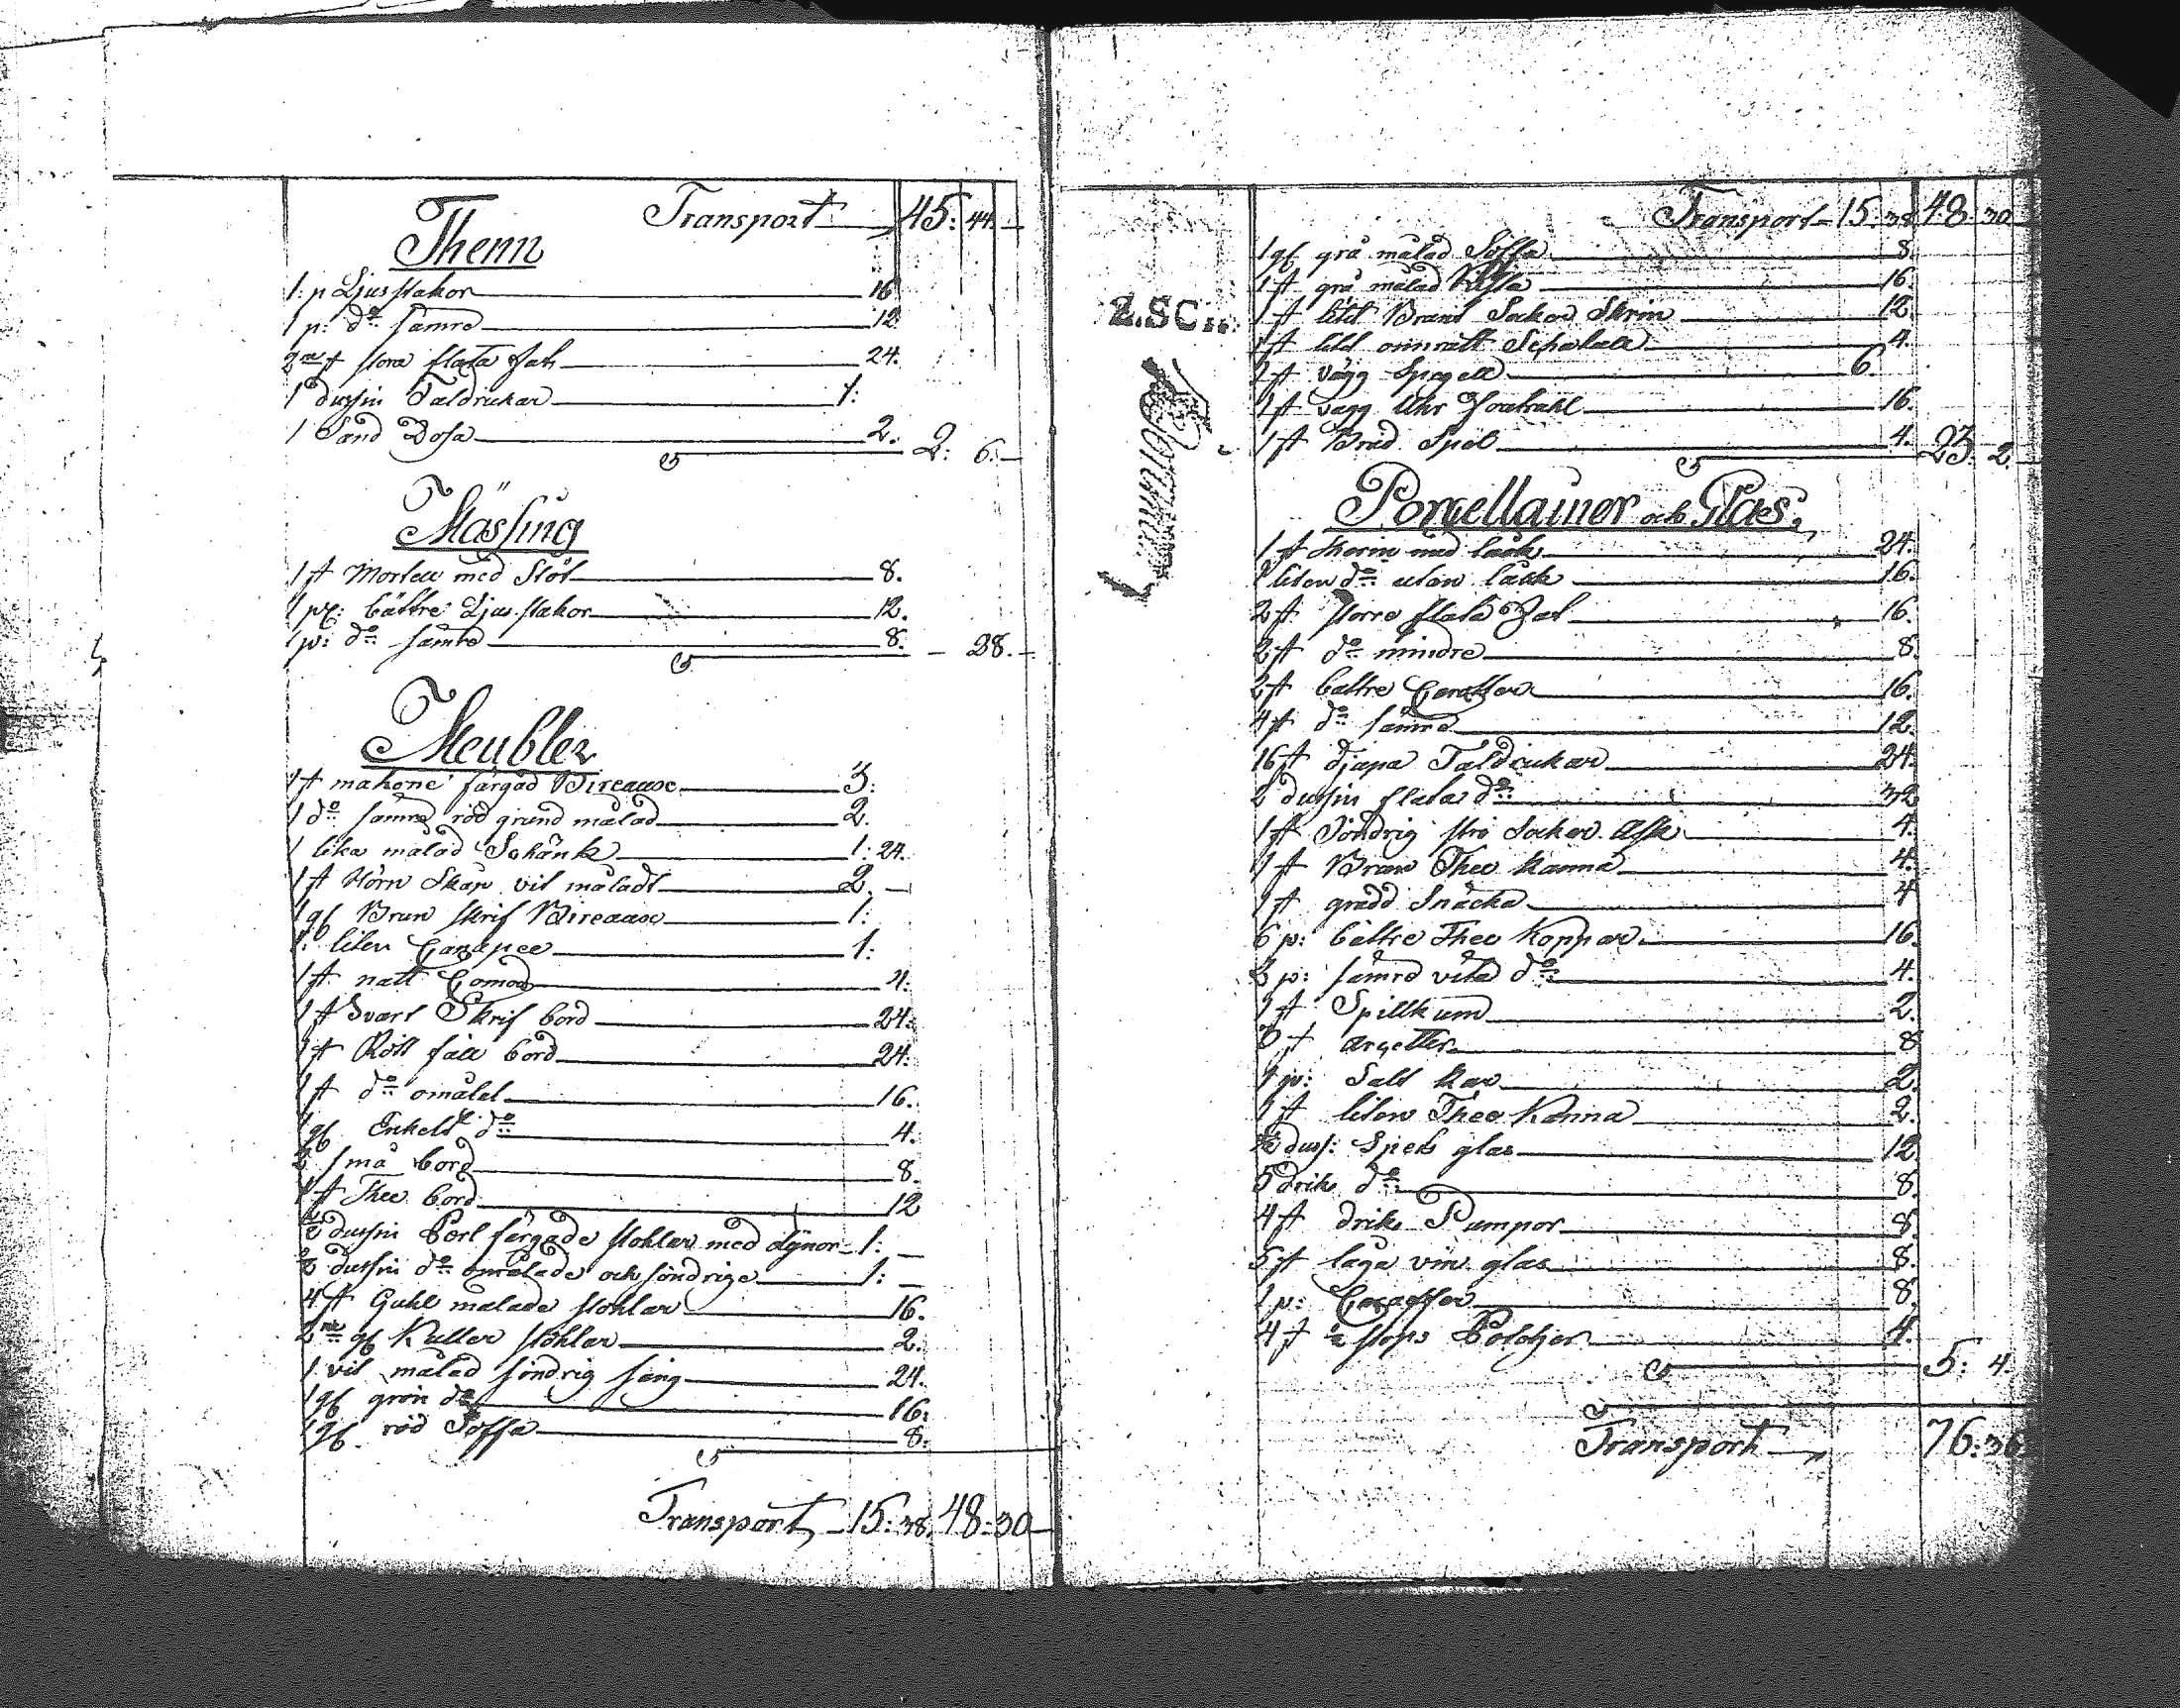 Transport 45: 44. —
Thenn
1: p Ljusstakor 16
1 p: d:o sämre 12
2 st stora flata fat 24.
1 dussin Taldrickar 1:
1 Sand Dosa 2. 2: 6: —
Mässing
1 st Mortell med Stöt 8.
1 p: bättre Ljusstakor 12.
1 p: d:o sämre 8. — 28. —
Meubler
1 st mahone färgad Bireaux 3:
1 d:o sämre röd grund målad 2.
1 lika målad Schänk 1: 24.
1 st Hörn Skåp vit måladt 2. —
1 gl Brun skrif Bireaux 1:
1: liten Canapee 1:
1 st natt Comod 4:
1 st Svart Skrif bord 24:
1 st Rött fäll bord 24:
1 st d:o omålat 16.
1 gl Enkelt d:o 4.
2 små bord 8.
1 st Thee bord 12
½ dussin Perl färgade stohlar med dÿnor 1: —
½ dussin d:o omålade och söndrige 1: —
4 st Guhl målade stohlar 16.
2 gl Kuller stohlar 2.
1 vit målad söndrig säng 24.
1 gl grön d:o 16:
1 gl röd Soffa 8:
Transport 15: 38. 48: 30 —
Transport 15: 38 48: 30
1 gl grå målad Soffa 8
1 st grå målad Kista 16.
1 st litet Brunt Socker Skrin 12
1 st litet Schatull 4.
1 st vägg Spegell 6
1 st vägg Uhr 16.
1 st Bräd Spel 4. 23: 2.
Porcellainer och Glas.
1 st Skorin med låck 24.
1 liten d:o utan låck 16.
2 st större flata Fat 16.
2 st d:o mindre 8.
2 st bättre 16.
4 st d:o sämre 12.
16 st djupa Taldrickar 24.
2 dussin flata d:o 32
1 st Söndrig strö Socker Ask 4.
1 st Brun Thee kanna 4.
1 st grädd Snäcka 4
6 p: bättre Thee Koppar 16.
2 p: sämre vita d:o 4.
1 st Spillkum 2.
3 st 8
1 p: Salt kar 2.
1 st liten Thee Kanna 2.
½ duss: Spets glas 12
5 drik d:o 8.
4 st drik Pumpor 8.
5 st låga vin glas 8.
1 p: Caraffer 8.
4 st ½ stops 4.
5: 4.
Transport 76: 36